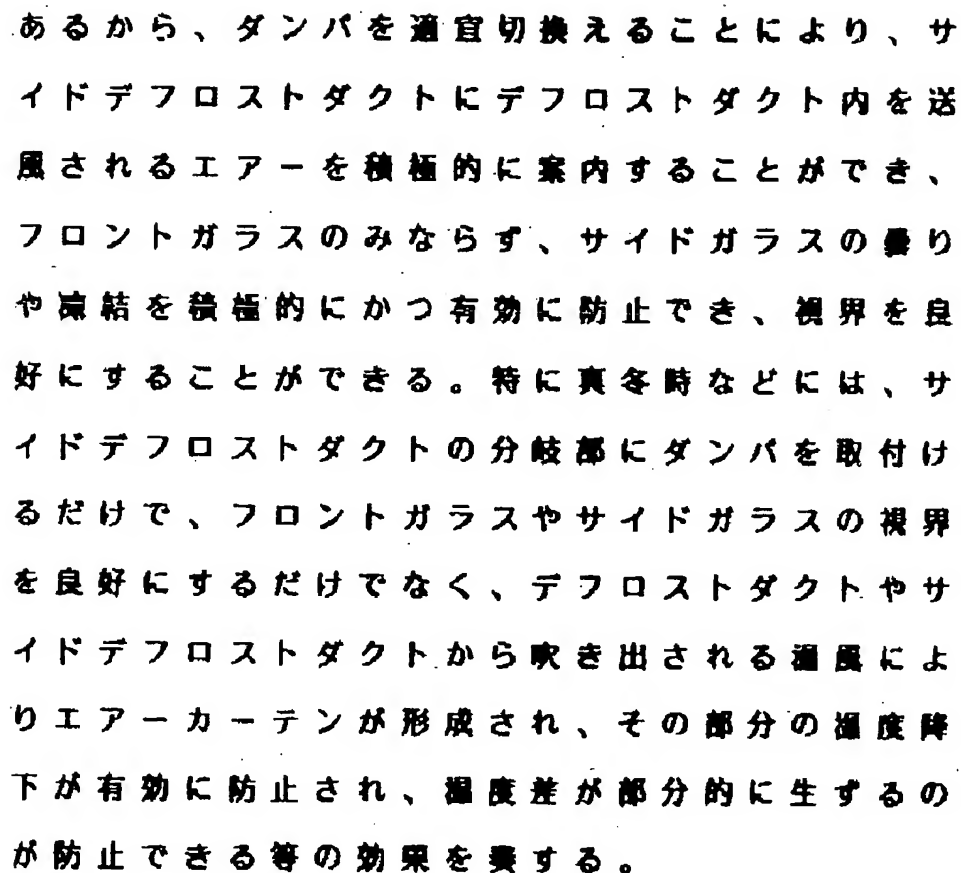 あるから、ダンパを適宜切換えることにより、サ
イドデフロストダクトにデフロストダクト内を送
風されるエアーを積極的に案内することができ、
フロントガラスのみならず、サイドガラスの曇り
や凍結を積極的にかつ有効に防止でき、視界を良
好にすることができる。特に真冬時などには、サ
イドデフロストダクトの分岐部にダンパを取付け
るだけで、フロントガラスやサイドガラスの視界
を良好にするだけでなく、デフロストダクトやサ
イドデフロストダクトから吹き出される温風によ
りエアーカーテンが形成され、その部分の温度降
下が有効に防止され、温度差が部分的に生ずるの
が防止できる等の効果を奏する。